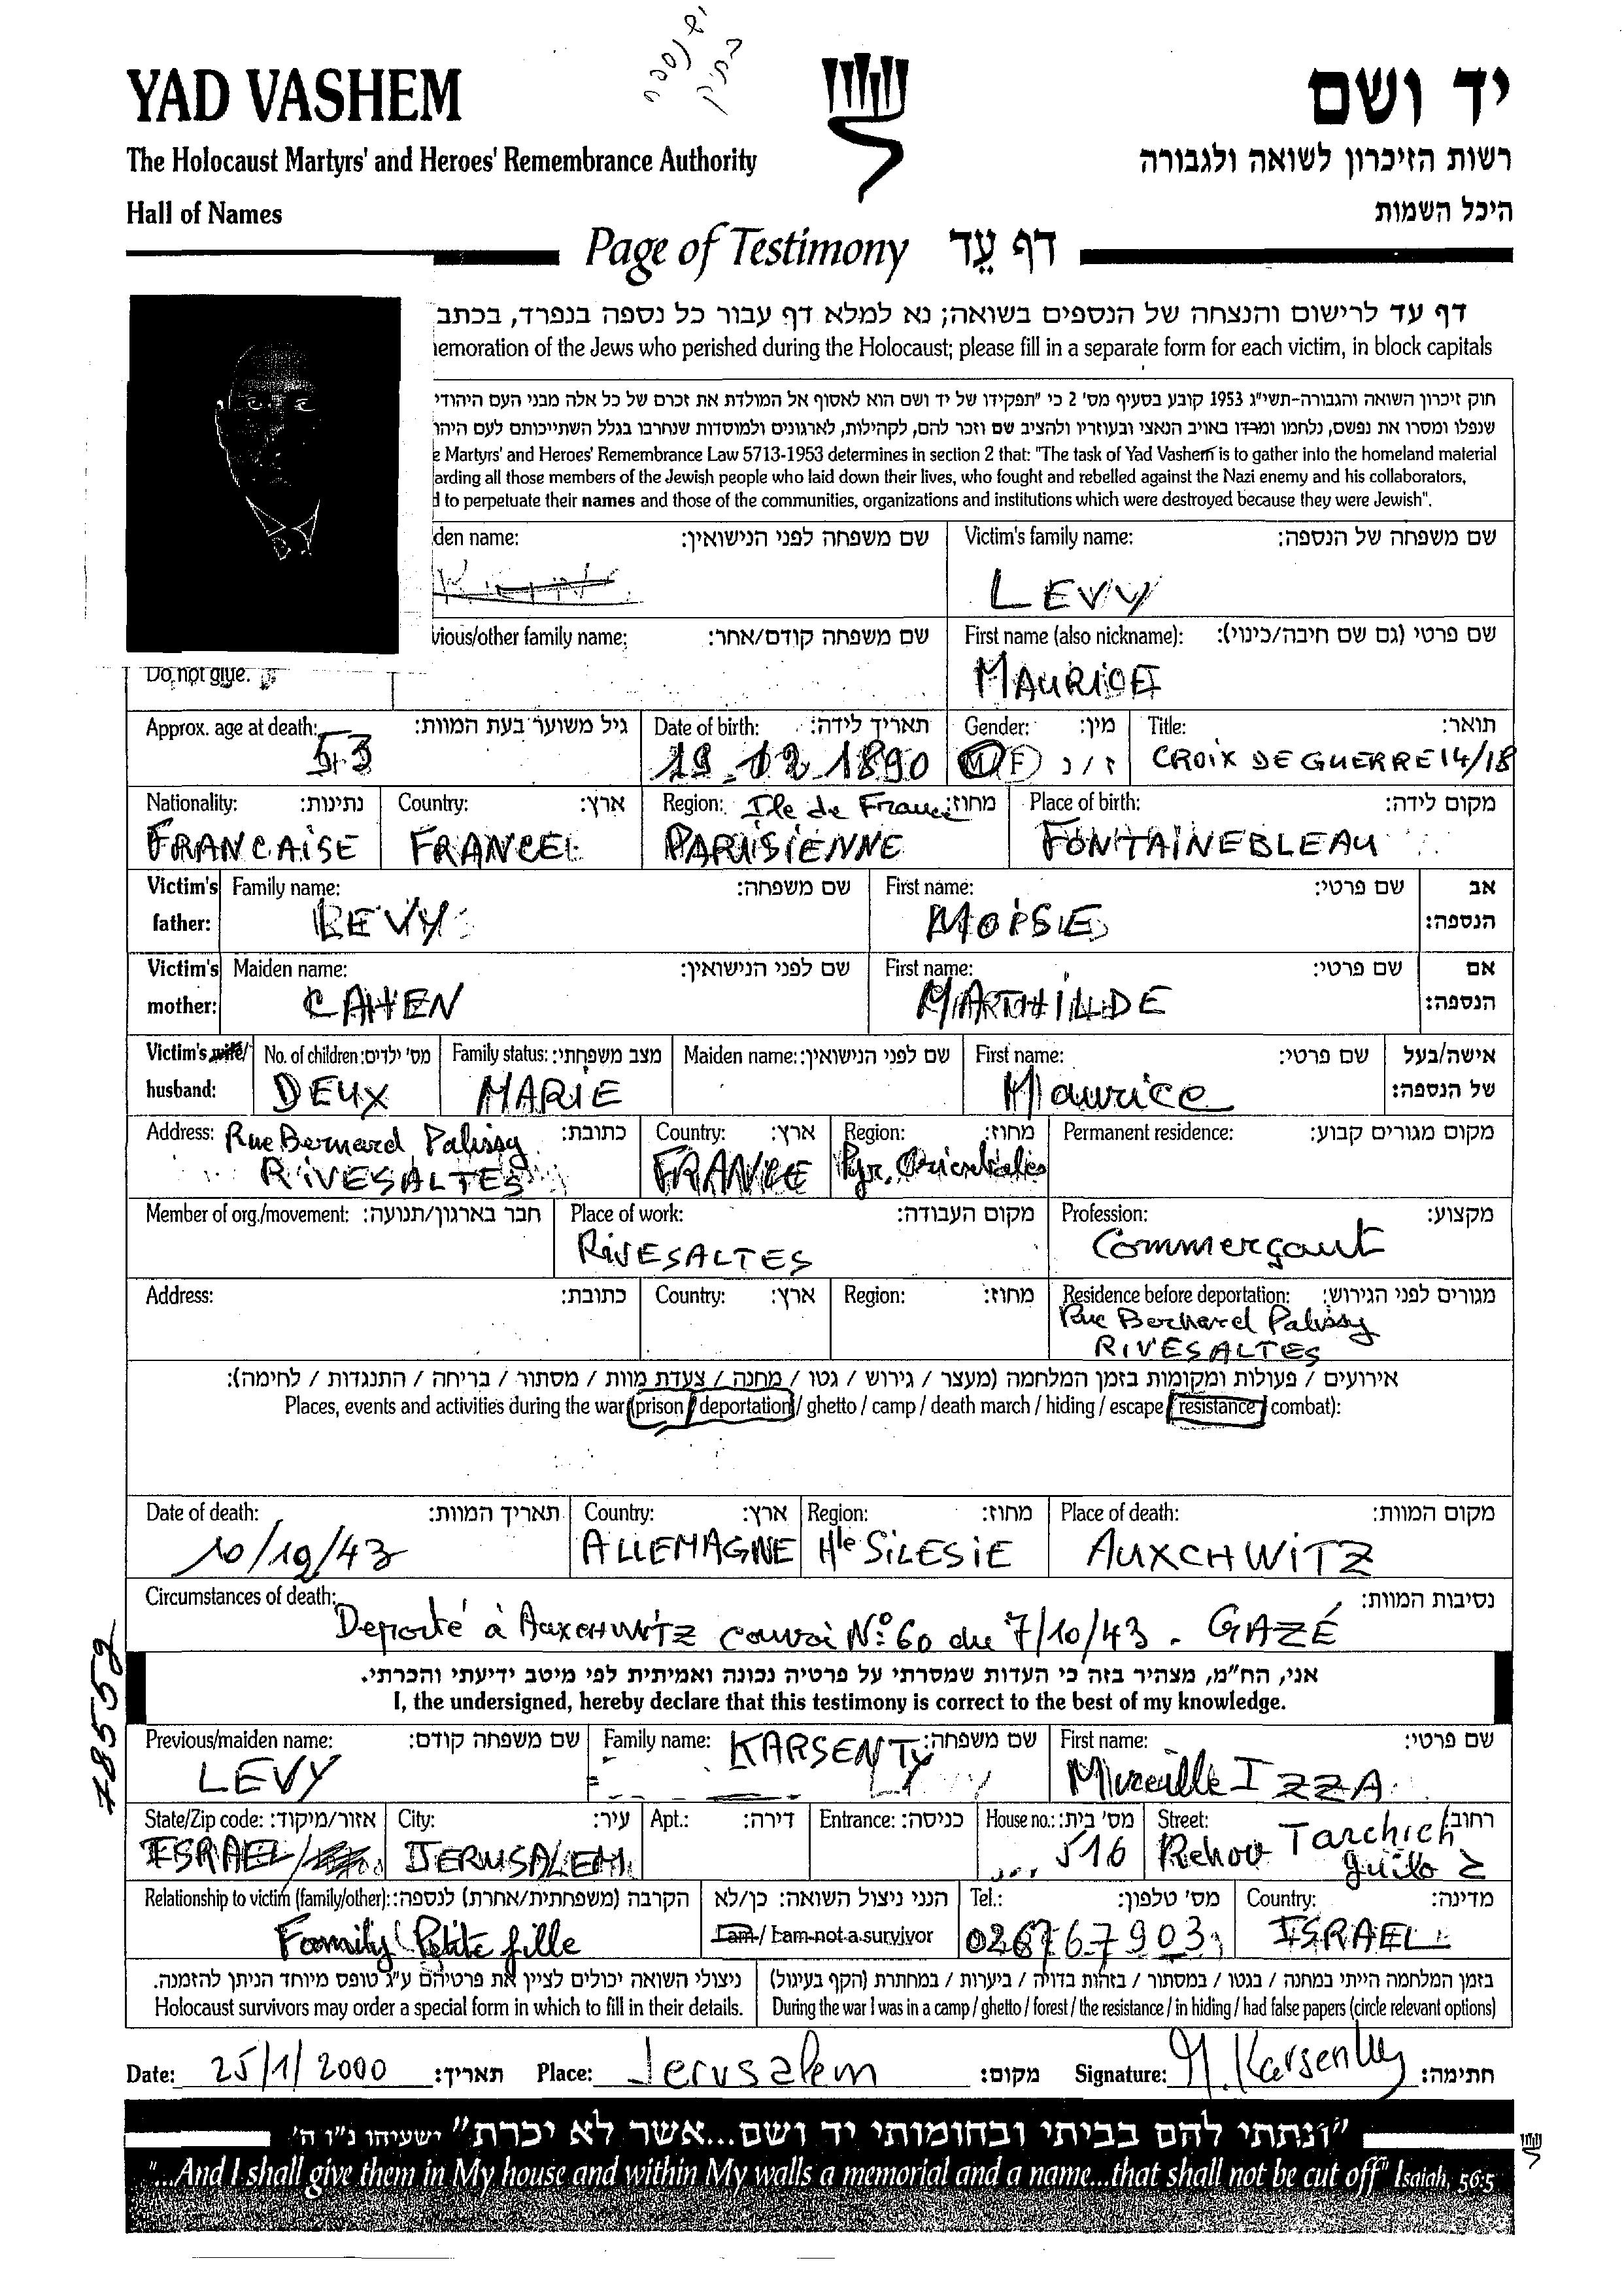 יש נספח
בתיק
YAD VASHEM
יד ושם
The Holocaust Martyrs' and Heroes' Remembrance Authority
רשות הזיכרון לשואה ולגבורה
Hall of Names
היכל השמות
Page of Testimony דף עֵד
דף עד לרישום והנצחה של הנספים בשואה; נא למלא דף עבור כל נספה בנפרד, בכתב
emoration of the Jews who perished during the Holocaust; please fill in a separate form for each victim, in block capitals
חוק זיכרון השואה והגבורה-תשי"ג 1953 קובע בסעיף מס' 2 כי "תפקידו של יד ושם הוא לאסוף אל המולדת את זכרם של כל אלה מבני העם היהודי
שנפלו ומסרו את נפשם, נלחמו ומרדו באויב הנאצי ובעוזריו ולהציב שם וזכר להם, לקהילות, לארגונים ולמוסדות שנחרבו בגלל השתייכותם לעם היהו
e Martyrs' and Heroes' Remembrance Law 5713-1953 determines in section 2 that: "The task of Yad Vashem is to gather into the homeland material
arding all those members of the Jewish people who laid down their lives, who fought and rebelled against the Nazi enemy and his collaborators,
d to perpetuate their names and those of the communities, organizations and institutions which were destroyed because they were Jewish".
den name: שם משפחה לפני הנישואין: Victim's family name: שם משפחה של הנספה:
LEVY
vious/other family name: שם משפחה קודם/אחר: First name (also nickname): שם פרטי (גם שם חיבה/כינוי):
Do not glue.
MAURICE
Approx. age at death: גיל משוער בעת המוות: Date of birth: תאריך לידה: Gender: מין: Title: תואר:
53 19.02.1890 M/F ז/נ CROIX DE GUERRE 14/18
Nationality: נתינות: Country: ארץ: Region: Ile de France מחוז: Place of birth: מקום לידה:
FRANCAISE FRANCE PARISIENNE FONTAINEBLEAU
Victim's father: Family name: שם משפחה: First name: שם פרטי: אב הנספה:
LEVY MOISE
Victim's mother: Maiden name: שם לפני הנישואין: First name: שם פרטי: אם הנספה:
CAHEN MATHILDE
Victim's wife/ husband: No. of children: מס' ילדים: Family status: מצב משפחתי: Maiden name: שם לפני הנישואין: First name: שם פרטי: אישה/בעל של הנספה:
DEUX MARIE Maurice
Address: Rue Bernard Palissy כתובת: Country: ארץ: Region: מחוז: Permanent residence: מקום מגורים קבוע:
RIVESALTES FRANCE Pyr. Orientales
Member of org./movement: חבר בארגון/תנועה: Place of work: מקום העבודה: Profession: מקצוע:
RIVESALTES Commerçant
Address: כתובת: Country: ארץ: Region: מחוז: Residence before deportation: מגורים לפני הגירוש:
Rue Bernard Palissy
RIVESALTES
אירועים / פעולות ומקומות בזמן המלחמה (מעצר / גירוש / גטו / מחנה / צעדת מוות / מסתור / בריחה / התנגדות / לחימה):
Places, events and activities during the war (prison / deportation / ghetto / camp / death march / hiding / escape / resistance / combat):
Date of death: תאריך המוות: Country: ארץ: Region: מחוז: Place of death: מקום המוות:
ALLEMAGNE Hle SILESIE AUXCHWITZ
Circumstances of death: נסיבות המוות:
Deporté à AuxCHWITZ convoi N° 60 du 7/10/43 . GAZÉ
אני, הח"מ, מצהיר בזה כי העדות שמסרתי על פרטיה נכונה ואמיתית לפי מיטב ידיעתי והכרתי.
I, the undersigned, hereby declare that this testimony is correct to the best of my knowledge.
Previous/maiden name: שם משפחה קודם: Family name: שם משפחה: First name: שם פרטי:
LEVY KARSENTY Mireille IZZA
State/Zip code: אזור/מיקוד: City: עיר: Apt.: דירה: Entrance: כניסה: House no.: מס' בית: Street: רחוב:
ISRAEL/ JERUSALEM 516 Rehov Tarchich
guilo
Relationship to victim (family/other): הקרבה (משפחתית/אחרת) לנספה: הנני ניצול השואה: כן/לא Tel.: מס' טלפון: Country: מדינה:
Family Petite fille I am / I am not a survivor 026767903 ISRAEL
ניצולי השואה יכולים לציין את פרטיהם ע"ג טופס מיוחד הניתן להזמנה. בזמן המלחמה הייתי במחנה / בגטו / במסתור / בזהות בדויה / ביערות / במחתרת (הקף בעיגול)
Holocaust survivors may order a special form in which to fill in their details. During the war I was in a camp / ghetto / forest / the resistance / in hiding / had false papers (circle relevant options)
Date: 25/1/2000 תאריך: Place: Jerusalem מקום: Signature: M. Karsenty חתימה:
"ונתתי להם בביתי ובחומותי יד ושם...אשר לא יכרת" ישעיהו נ"ו ה'
"...And I shall give them in My house and within My walls a memorial and a name...that shall not be cut off" Isaiah, 56:5
78552